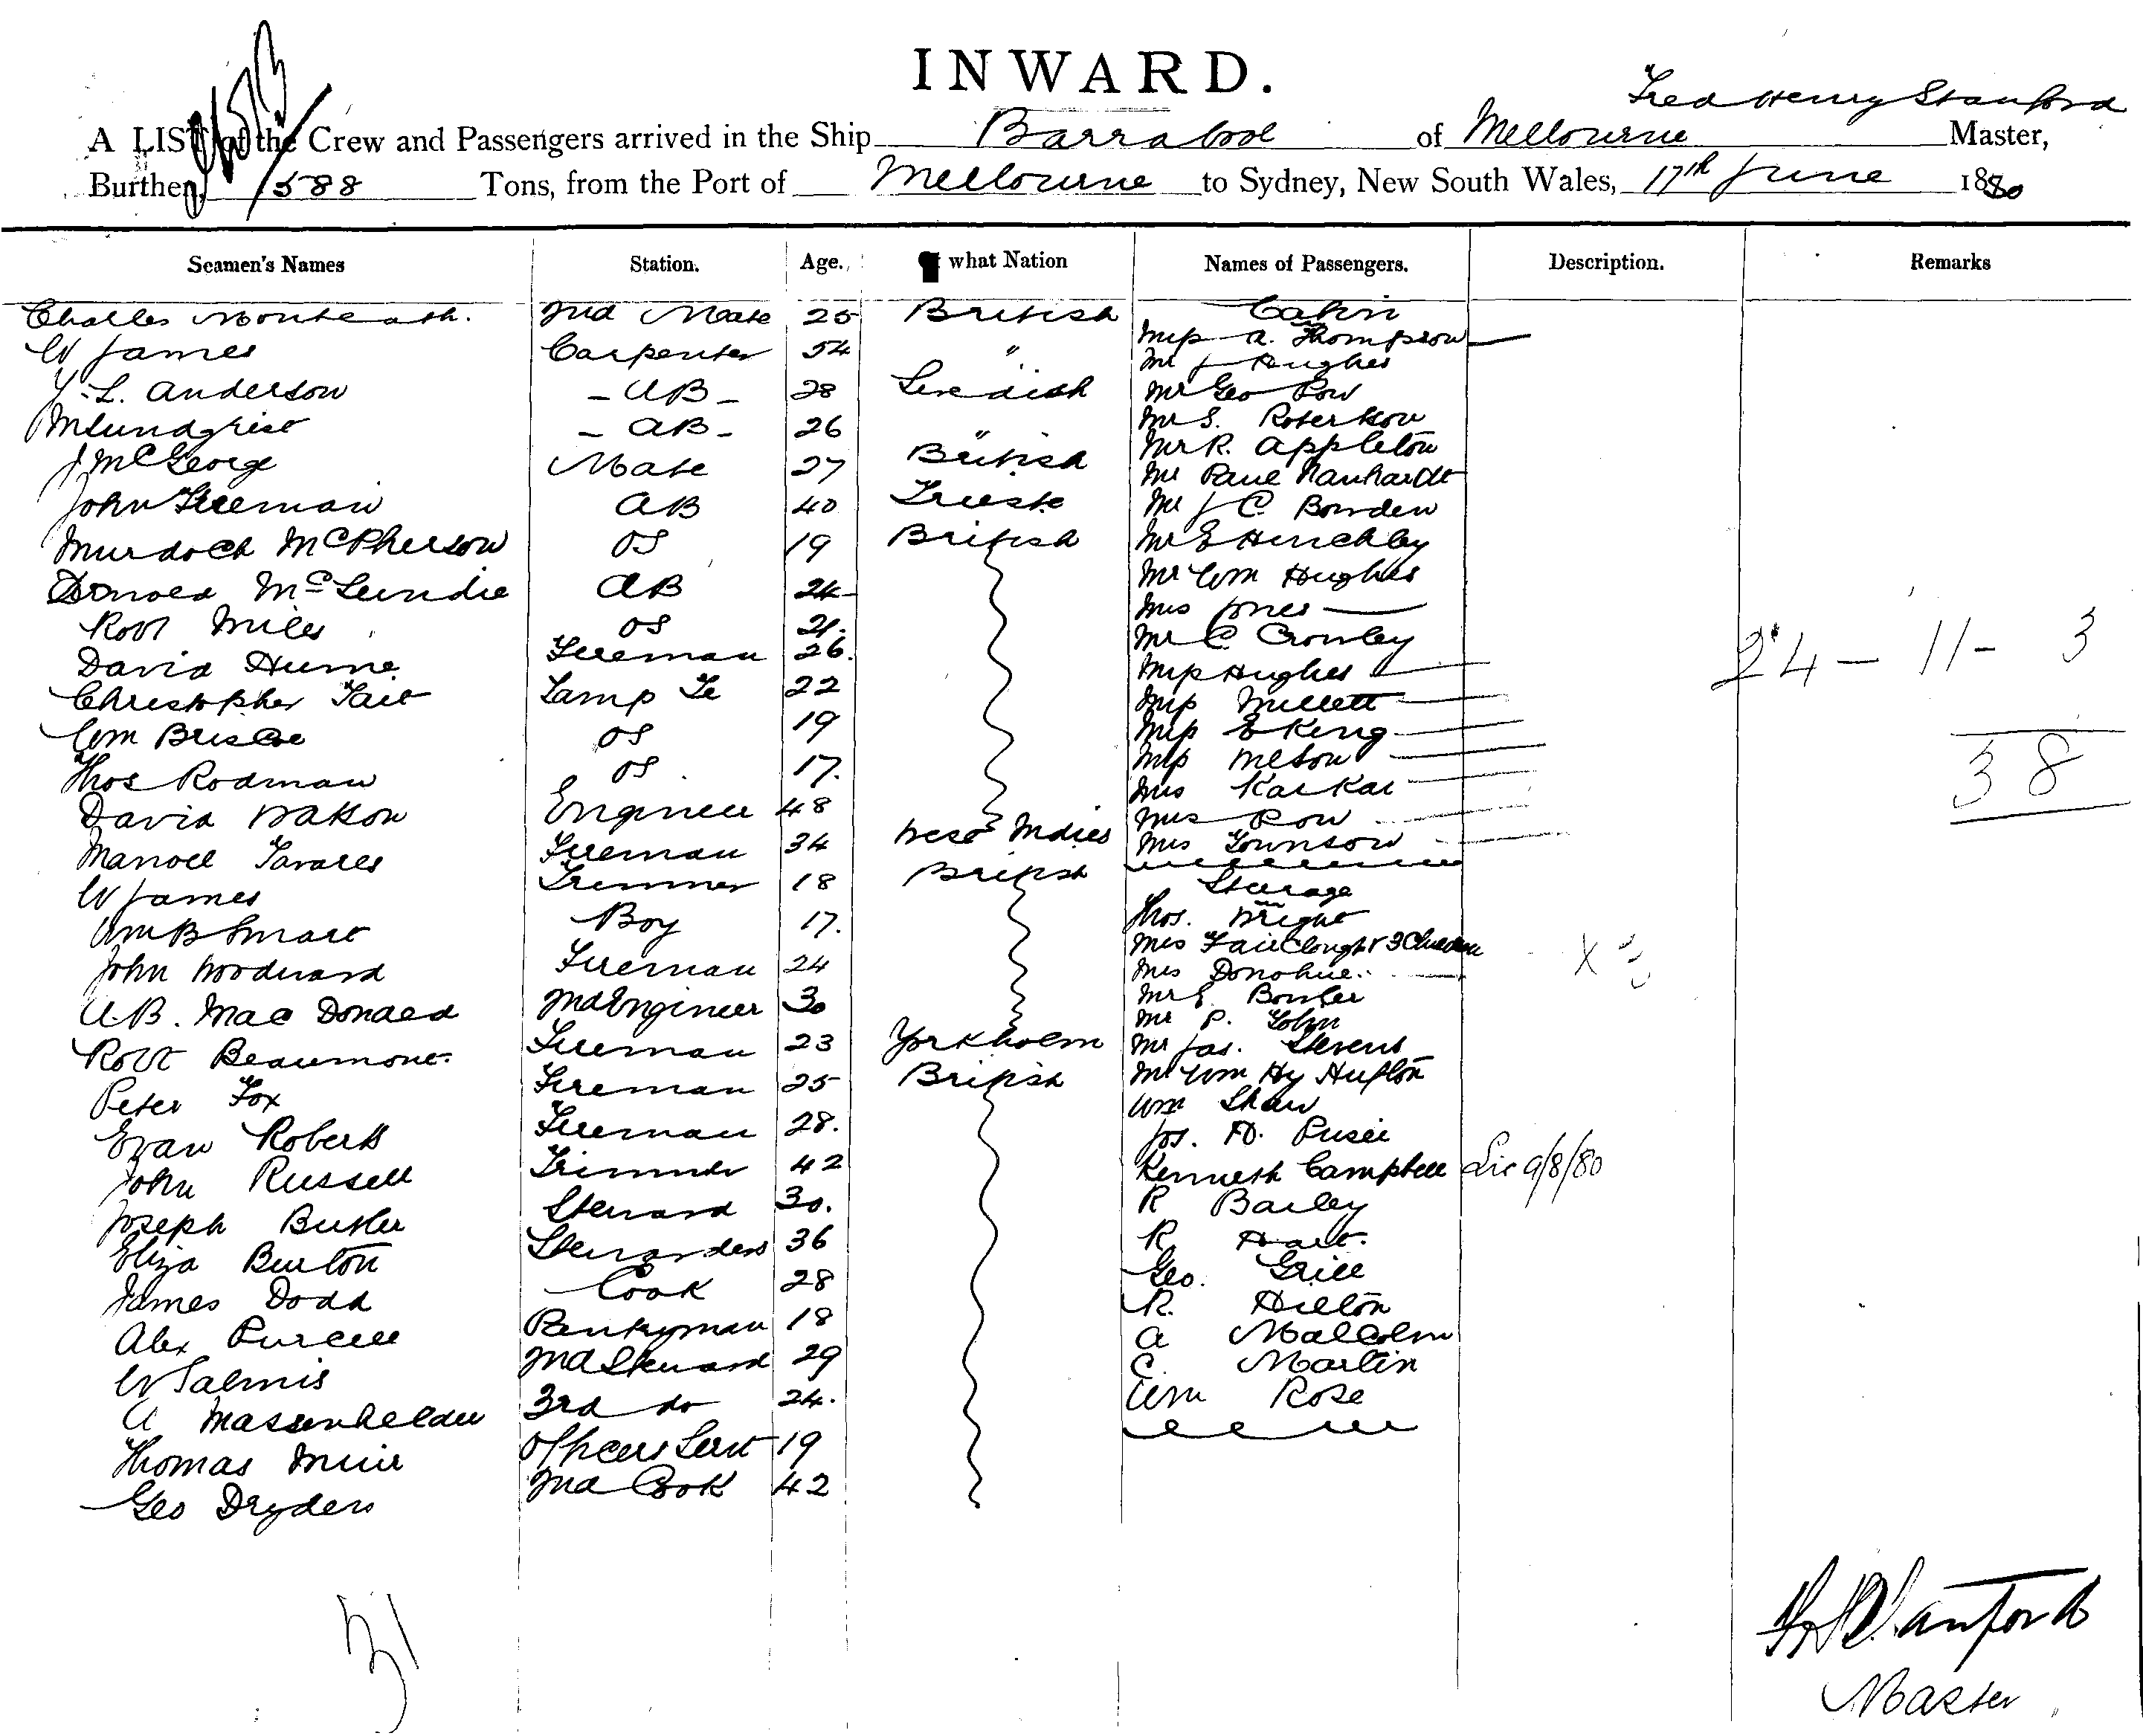 INWARD.
Fred Henry Stanford
A LIST of the Crew and Passengers arrived in the Ship Barrabool of Melbourne Master,
Burthen, 588 Tons, from the Port of Melbourne to Sydney, New South Wales, 17th June 1880
Seamen's Names Station. Age. what Nation Names of Passengers. Description. Remarks
Charles Monteath. 2nd Mate 25 British Cabin
W James Carpenter 54 " Miss A. Thompson
Mr J Hughes
Y. L. Anderson - AB - 28 Swedish Mr Geo Row
M Lundqrist - AB - 26 " Mr S. Robertson
Mr R. Appleton
J McGeorge Mate 27 British Mr Paul Nanhardt
John Freeman AB 40 Trieste Mr J C. Bowden
Murdoch McPherson OS 19 British Mr E Hinchley
Donald McLundie AB 24 Mr Wm Hughes
Mrs Jones
Robt Miles OS 21. Mr C. Crowley
David Hume Fireman 26. Miss Hughes
Christopher Tait Lamp Tr 22 Miss Millett
Wm Briscoe OS 19 Miss E King
Thos Rodman OS 17. Miss Nelson
Mrs Karkar
David Watson Engineer 48 Mrs Row
Manoel Tavares Fireman 34 West Indies Mrs Johnson
W James Trimmer 18 British Steerage
Wm B Smart Boy 17. Thos. Wright
Mrs Fairclough & 3 Children
John Woodward Fireman 24 Mrs Donohue
A.B. Mac Donald 2nd Engineer 30 Mr E. Bowler
Mr P. John
Robt Beaumont. Fireman 23 Yorkholm Mr Jas. Stevens
Peter Fox Fireman 25 British Mr Wm Hy Hufton
Wm Shaw
Evan Roberts Fireman 28. Jos. D. Pusie
John Russell Trimmer 42 Kenneth Campbell Lic 9/8/80
Joseph Butler Steward 30. R Bailey
Eliza Burton Stewardess 36 R Hart.
James Dodd Cook 28 Geo. Grill
R. Hilton
Alex Purcell Pantryman 18 A Malcolm
W Salmis 2nd Steward 29 C. Martin
A Massenhelder 3rd do 24. Wm Rose
Thomas Muir Officers Servt 19
Geo Dryden 2nd Cook 42
24 - 11 - 3
38
31
Stanford
Master